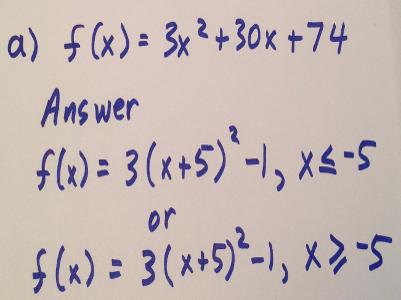 a) f(x) = 3x² + 30x + 74
Answer
f(x) = 3(x+5)² -1, x ≤ -5
or
f(x) = 3(x+5)² -1, x ≥ -5